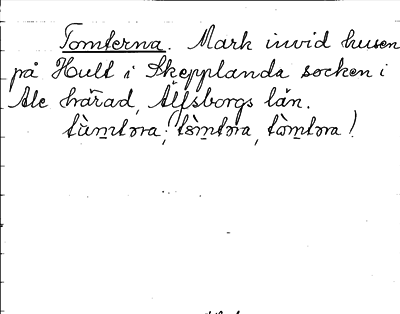 Tomterna. Mark invid husen
på Hult i Skepplanda socken i
Ale härad, Älfsborgs län.